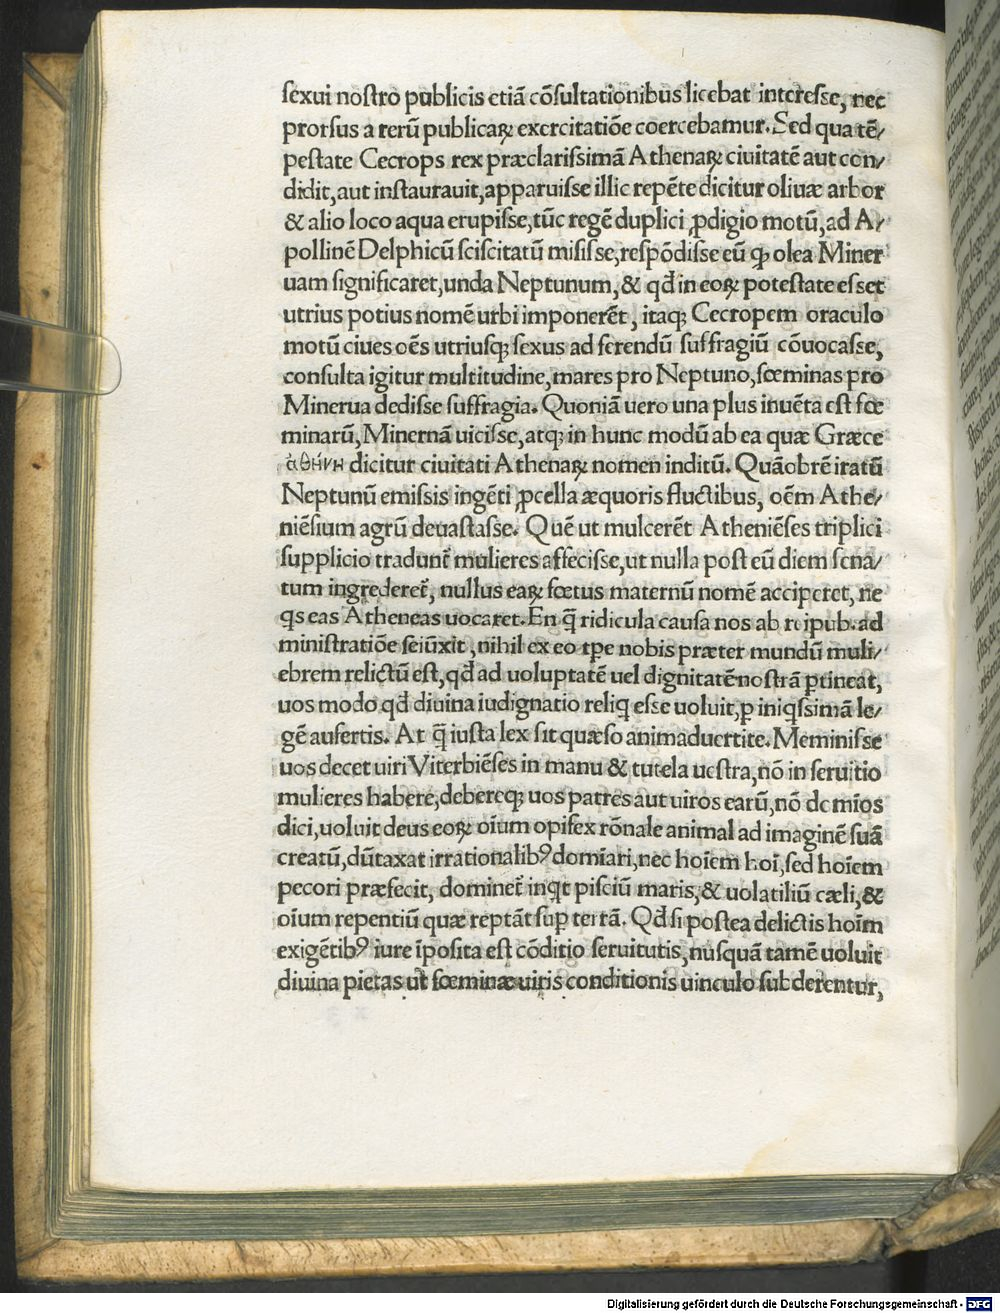 sexui nostro publicis etiā cōsultationibus licebat interesse, nec
prorsus a rerū publicaꝝ exercitatiōe coercebamur. Sed qua tē/
pestate Cecrops rex præclarissimā Athenaꝝ ciuitatē aut con/
didit, aut instaurauit, apparuisse illic repēte dicitur oliuæ arbor
& alio loco aqua erupisse, tūc regē duplici ꝓdigio motū, ad A/
pollinē Delphicū sciscitatū misisse, respōdisse eū ꝙ olea Miner
uam significaret, unda Neptunum, & qđ in eoꝝ potestate esset
utrius potius nomē urbi imponerēt, itaqꝫ Cecropem oraculo
motū ciues oēs utriusqꝫ sexus ad ferendū suffragiū cōuocasse,
consulta igitur multitudine, mares pro Neptuno, fœminas pro
Minerua dedisse suffragia. Quoniā uero una plus inuēta est fœ
minarū, Mineruā uicisse, atqꝫ in hunc modū ab ea quæ Græce
ἀθήνη dicitur ciuitati Athenaꝝ nomen inditū. Quāobrē iratū
Neptunū emissis ingēti ꝓcella æquoris fluctibus, oēm Athe/
niēsium agrū deuastasse. Quē ut mulcerēt Atheniēses triplici
supplicio tradunt᷑ mulieres affecisse, ut nulla post eū diem sena/
tum ingrederet᷑, nullus eaꝝ fœtus maternū nomē acciperet, ne
qs eas Atheneas uocaret. En q̄ ridicula causa nos ab reipub. ad
ministratiōe seiūxit, nihil ex eo tꝑe nobis præter mundū muli/
ebrem relictū est, qđ ad uoluptatē uel dignitatē nostrā ꝑtineat,
uos modo qđ diuina iudignatio reliq esse uoluit, ꝑ iniqssimā le/
gē aufertis. At q̄ iusta lex sit quæso animaduertite. Meminisse
uos decet uiri Viterbiēses in manu & tutela uestra, nō in seruitio
mulieres habere, debereqꝫ uos patres aut uiros earū, nō dc mīos
dici, uoluit deus eoꝝ oīum opifex rōnale animal ad imaginē suā
creatū, dūtaxat irrationalibꝰ domīari, nec hoīem hoī, sed hoīem
pecori præfecit, dominet᷑ inqt pisciū maris, & uolatiliū cæli, &
oīum repentiū quæ reptāt suꝑ terrā. Qđ si postea delictis hoīm
exigētibꝰ iure īposita est cōditio seruitutis, nusquā tamē uoluit
diuina pietas ut fœminæ uiris conditionis uinculo subderentur,
Digitalisierung gefördert durch die Deutsche Forschungsgemeinschaft - DFG